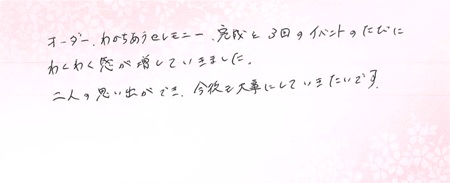 オーダー、わかちあうセレモニー、完成と3回のイベントのたびに
わくわく感が増していきました。
二人の思い出ができ、今後も大事にしていきたいです。